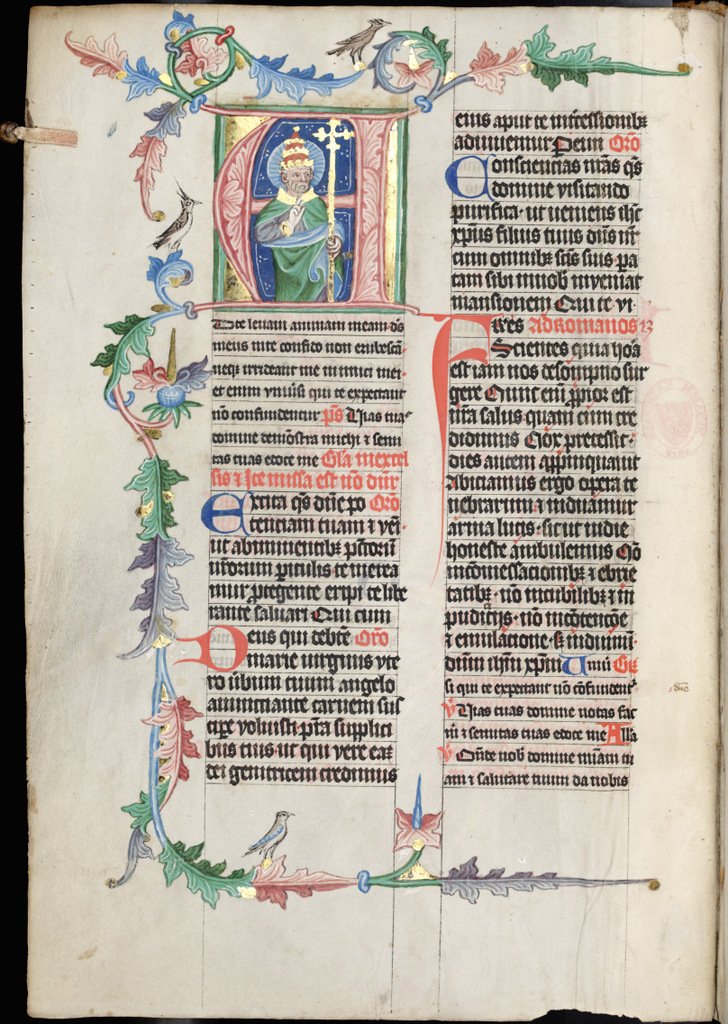 A
D te levavi animam meam ds
meus in te confido non erubescā
neqi irrideant me inimici mei
et enim vniūsi qui te expectant
nō confundentur ps Vias tuas
domine demōstra michi ⁊ semi
tas tuas edoce me Glā in excel
sis ⁊ Ite missa est nō dur
Excita qs dn̄e po Oro
tenciam tuam ⁊ veni
ut ab imminentibꝫ pctōrū
nr̄orum piculis te merea
mur ptegente eripi te libe
rante saluari Qui cum
Deus qui de btē Oro
marie virginis vte
ro ūbum tuum angelo
annunciante carnem sus
cipe voluisti pstā supplici
bus tuis ut qui vere eaꝫ
dei genitricem credimus
eius aput te intercessionibꝫ
adiuuemur Per eun Oro
Consciencias nr̄as qs
domine visitando
purifica ut veniens ihc
xp̄us filius tuus dn̄s nr̄
cum omnibꝫ scīs suis pa
ratam sibi in nob inveniat
mansionem Qui te vi
Fr̄es ad Romanos 13
Scientes quia hora
est iam nos de sompno sur
gere Nunc eni ppior est
nr̄a salus quam cum cre
didimus Nox precessit
dies autem appinquauit
Abiciamus ergo opera te
nebrarum ⁊ induamur
arma lucis sicut in die
honeste ambulemus Nō
in cōmessacionibꝫ ⁊ ebrie
tatibꝫ nō in cubilibꝫ ⁊ in
pudicitijs nō in cōtencōe
⁊ emulacione sꝫ induimī
dn̄um ihm xp̄m Uniū Gr̄
si qui te expectant nō cōfundent
V Vias tuas domine notas fac
m̄ ⁊ semitas tuas edoce me Alla
V Ostde nob domine miām tu
am ⁊ salutare tuum da nobis